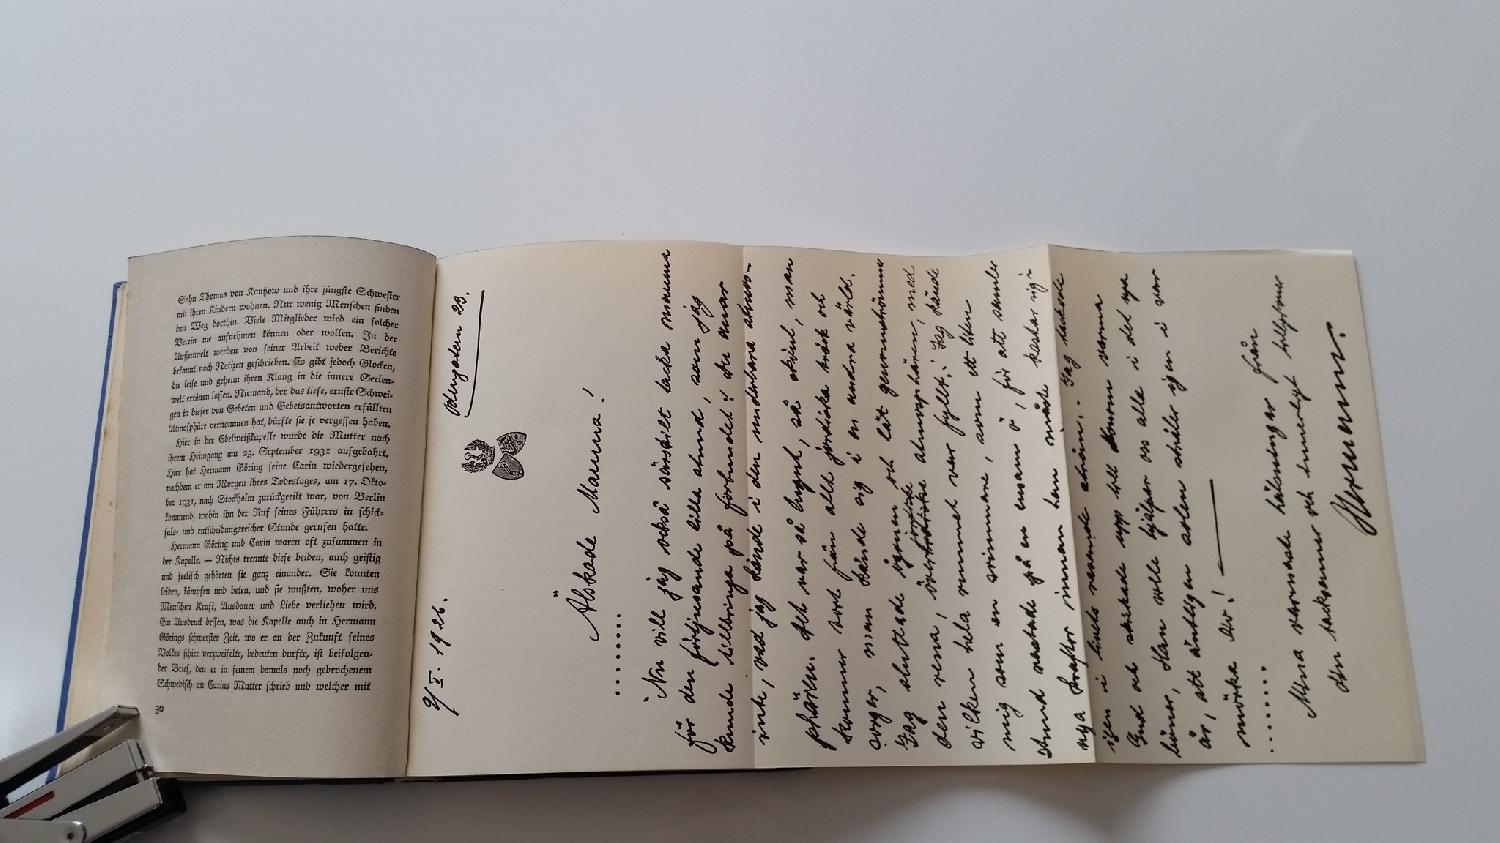 Sohn Thomas von Kantzow und ihre jüngste Schwester
mit ihren Kindern wohnen. Nur wenig Menschen finden
den Weg dorthin. Viele Mitglieder wird ein solcher
Verein nie aufnehmen können oder wollen. In der
Außenwelt werden von seiner Arbeit weder Berichte
bekannt noch Notizen geschrieben. Es gibt jedoch Glocken,
die leise und geheim ihren Klang in die innere Seelen-
welt ertönen lassen. Niemand, der das tiefe, ernste Schwei-
gen in dieser von Gebeten und Gebetsantworten erfüllten
Atmosphäre vernommen hat, dürfte sie je vergessen haben.
Hier in der Edelweißkapelle wurde die Mutter nach
ihrem Heimgang am 25. September 1931 aufgebahrt.
Hier hat Hermann Göring seine Carin wiedergesehen,
nachdem er am Morgen ihres Todestages, am 17. Okto-
ber 1931, nach Stockholm zurückgeeilt war, von Berlin
kommend, wohin ihn der Ruf seines Führers in schick-
sals- und entscheidungsreicher Stunde gerufen hatte.
Hermann Göring und Carin waren oft zusammen in
der Kapelle. — Nichts trennte diese beiden, auch geistig
und seelisch gehörten sie ganz einander. Sie konnten
leiden, kämpfen und beten, und sie wußten, woher uns
Menschen Kraft, Ausdauer und Liebe verliehen wird.
Ein Ausdruck dessen, was die Kapelle auch in Hermann
Görings schwerster Zeit, wo er an der Zukunft seines
Volkes schier verzweifelte, bedeuten durfte, ist beifolgen-
der Brief, den er in seinem damals noch gebrochenem
Schwedisch an Carins Mutter schrieb und welcher mit
30
Odengatan 23.
2/X. 1926.
Älskade Mamma!
Nu vill jag också särskilt tacka mamma
för den förtjusande lilla stund, som jag
kunde tillbringa på förbundet i du anar
inte, vad jag kände i den underbara atmos-
phären. Allt var så lugnt, så skönt, man
kommer bort från allt jordiska bråk och
sorger, man kände sig i en andra värld.
Jag sluttade ögonen och lät genomströmma
den rena, atmosphären, med
vilken hela rummed var fyllt. Jag kände
mig som en svimmare, som ett liten
stund rastade på en ensam ö, för att samla
nya krafter innan han måste kastar sig i
igen i livets rasande ström. Jag tackade
Gud och skickade upp till honom varma
böner, Han ville hjälpar oss alla i det nya
år, att äntligen solen stråller igen i vår
mörka liv!
Mina varmaste hälsningar från
din tacksamer och innerligt tillgifvner
Hermann.